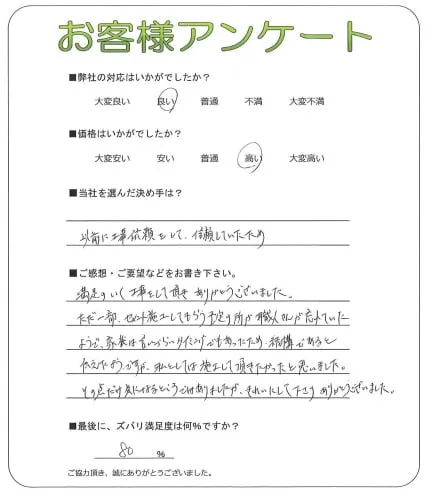 お客様アンケート
■弊社の対応はいかがでしたか？
大変良い 良い 普通 不満 大変不満
■価格はいかがでしたか？
大変安い 安い 普通 高い 大変高い
■当社を選んだ決め手は？
以前に工事依頼をして、信頼していたため
■ご感想・ご要望などをお書き下さい。
満足のいく工事をして頂き ありがとうございました。
ただ一部、施工してもらう予定の所が職人さんが忘れていた
ようで、家族は言いづらいタイミングでもあったため、結構であると
伝えたようですが、私としては施工して頂きたかったと思いました。
その点だけ気になるところではありましたが、きれいにして下さり ありがとうございました。
■最後に、ズバリ満足度は何％ですか？
80 ％
ご協力頂き、誠にありがとうございました。